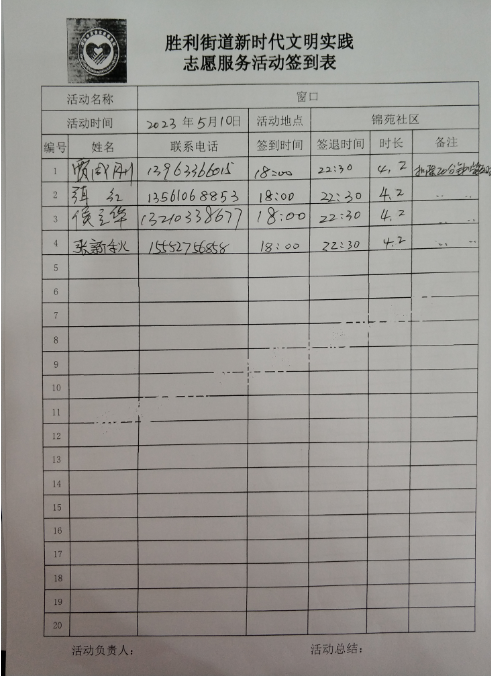 胜利街道新时代文明实践
志愿服务活动签到表
活动名称 窗口
活动时间 2023年5月10日 活动地点 锦苑社区
编号 姓名 联系电话 签到时间 签退时间 时长 备注
1 13963366015 18:00 22:30 4.2
2 红 13561068853 18:00 22:30 4.2 .. ..
3 侯立华 13210338677 18:00 22:30 4.2 .. ..
4 张新秋 15552756858 18:00 22:30 4.2 .. ..
5
6
7
8
9
10
11
12
13
14
15
16
17
18
19
20
活动负责人： 活动总结：